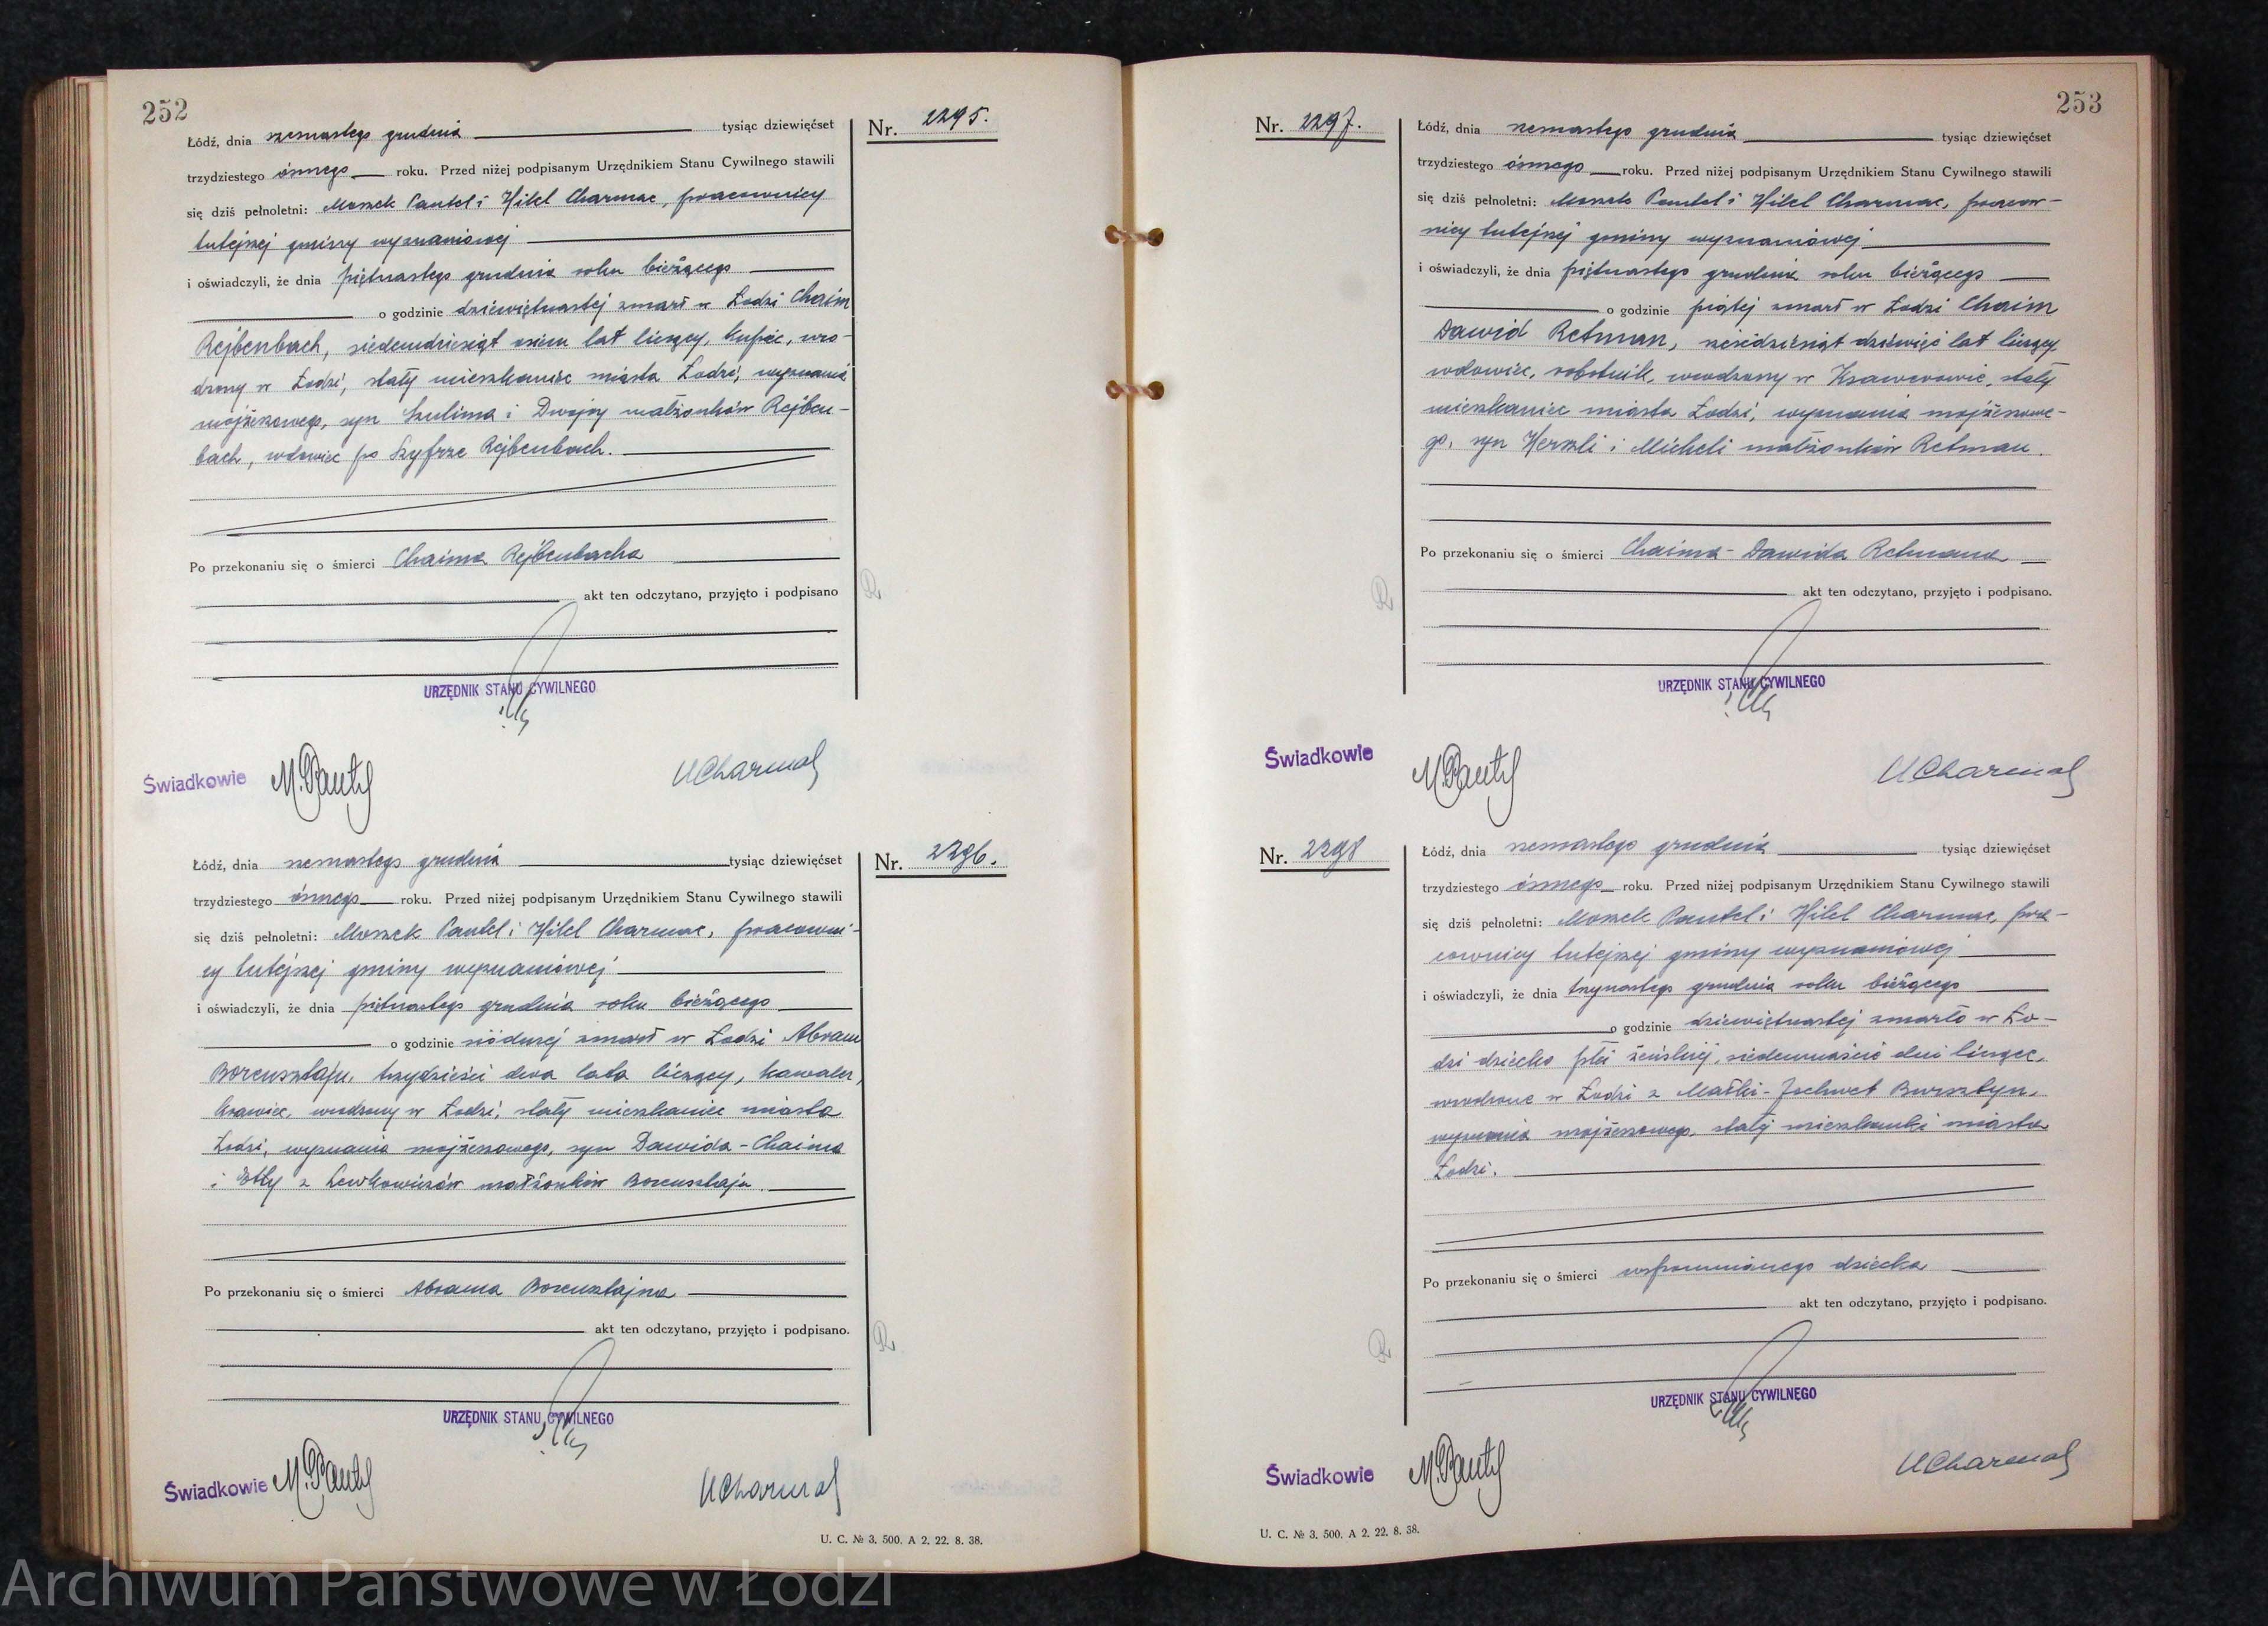 252
Łódź, dnia szesnastego grudnia tysiąc dziewięćset
Nr. 2295.
trzydziestego ósmego roku. Przed niżej podpisanym Urzędnikiem Stanu Cywilnego stawili
się dziś pełnoletni: Moszek Pantel i Hilel Charmac, pracownicy
tutejszej gminy wyznaniowej
i oświadczyli, że dnia piętnastego grudnia roku bieżącego
o godzinie dziewiętnastej zmarł w Łodzi Chaim
Rejbenbach, siedemdziesiąt osiem lat liczący, kupiec, uro-
dzony w Łodzi, stały mieszkaniec miasta Łodzi, wyznania
mojżeszowego, syn Szulima i Dwojry małżonków Rejben-
bach, wdowiec po Szyfrze Rejbenbach.
Po przekonaniu się o śmierci Chaima Rejbenbacha
akt ten odczytano, przyjęto i podpisano
URZĘDNIK STANU CYWILNEGO
Świadkowie M. Pantel HCharmac
Łódź, dnia szesnastego grudnia tysiąc dziewięćset
Nr. 2296.
trzydziestego ósmego roku. Przed niżej podpisanym Urzędnikiem Stanu Cywilnego stawili
się dziś pełnoletni: Moszek Pantel i Hilel Charmac, pracowni-
cy tutejszej gminy wyznaniowej
i oświadczyli, że dnia piętnastego grudnia roku bieżącego
o godzinie siódmej zmarł w Łodzi Abram
Borensztajn, trzydzieści dwa lata liczący, kawaler,
krawiec, urodzony w Łodzi, stały mieszkaniec miasta
Łodzi, wyznania mojżeszowego, syn Dawida-Chaima
i Etty z Lewkowiczów małżonków Borensztajn.
Po przekonaniu się o śmierci Abrama Borensztajna
akt ten odczytano, przyjęto i podpisano.
URZĘDNIK STANU CYWILNEGO
Świadkowie M. Pantel HCharmac
U. C. № 3. 500. A 2. 22. 8. 38.
253
Nr. 2297.
Łódź, dnia szesnastego grudnia tysiąc dziewięćset
trzydziestego ósmego roku. Przed niżej podpisanym Urzędnikiem Stanu Cywilnego stawili
się dziś pełnoletni: Moszek Pantel i Hilel Charmac, pracow-
nicy tutejszej gminy wyznaniowej
i oświadczyli, że dnia piętnastego grudnia roku bieżącego
o godzinie piątej zmarł w Łodzi Chaim
Dawid Retman, sześćdziesiąt dziewięć lat liczący,
wdowiec, robotnik, urodzony w Ksawerowie, stały
mieszkaniec miasta Łodzi, wyznania mojżeszowe-
go, syn Herszli i Micheli małżonków Retman.
Po przekonaniu się o śmierci Chaima-Dawida Retmana
akt ten odczytano, przyjęto i podpisano.
URZĘDNIK STANU CYWILNEGO
Świadkowie M. Pantel HCharmac
Nr. 2298
Łódź, dnia szesnastego grudnia tysiąc dziewięćset
trzydziestego ósmego roku. Przed niżej podpisanym Urzędnikiem Stanu Cywilnego stawili
się dziś pełnoletni: Moszek Pantel i Hilel Charmac, pra-
cownicy tutejszej gminy wyznaniowej
i oświadczyli, że dnia trzynastego grudnia roku bieżącego
o godzinie dziewiętnastej zmarło w Ło-
dzi dziecko płci żeńskiej, siedemnaście dni liczące,
urodzone w Łodzi z Małki-Jochwet Bursztyn,
wyznania mojżeszowego, stałej mieszkanki miasta
Łodzi.
Po przekonaniu się o śmierci wspomnianego dziecka
akt ten odczytano, przyjęto i podpisano.
URZĘDNIK STANU CYWILNEGO
Świadkowie M. Pantel HCharmac
U. C. № 3. 500. A 2. 22. 8. 38.
Archiwum Państwowe w Łodzi